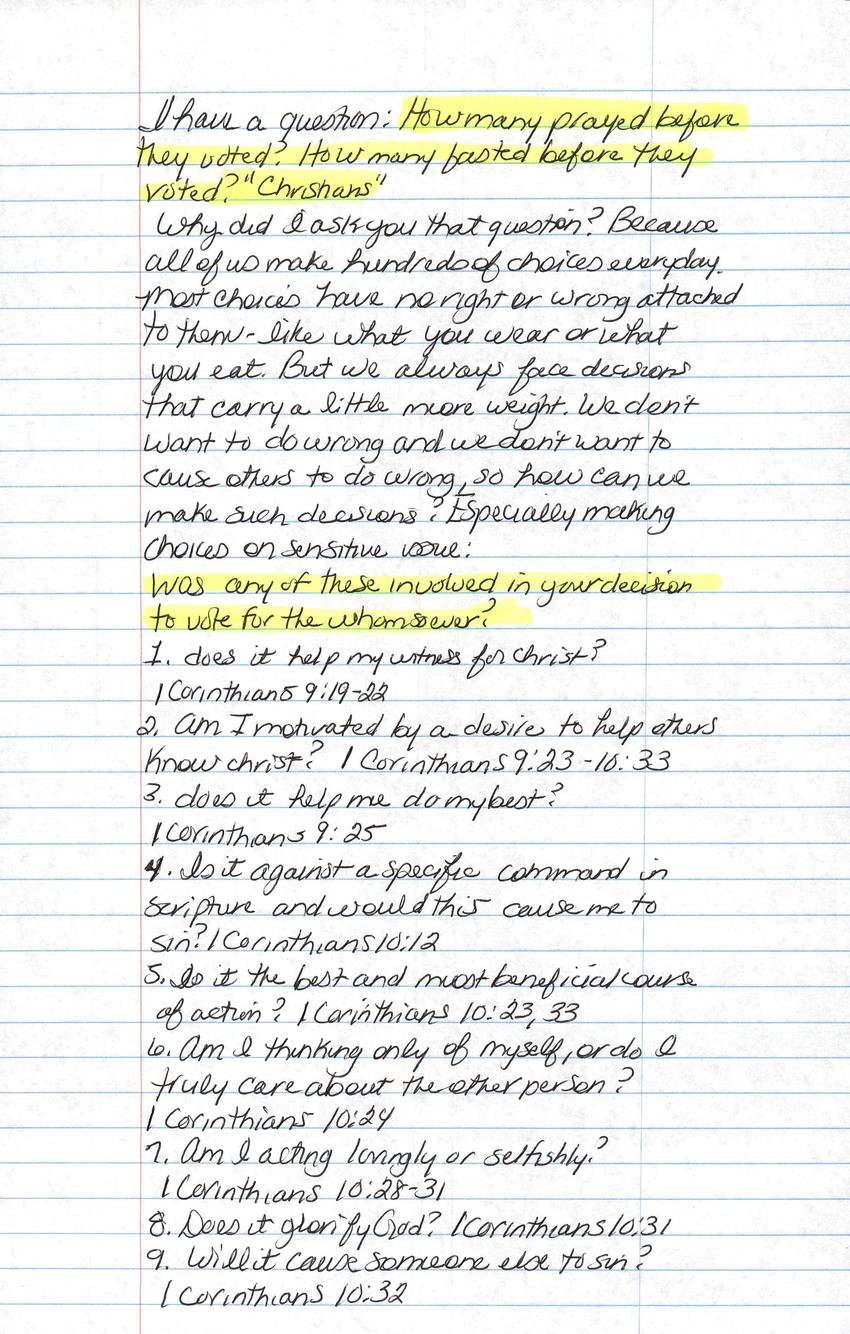 I have a question: How many prayed before
they voted? How many fasted before they
voted? "Christians"
Why did I ask you that question? Because
all of us make hundreds of choices everyday.
Most choices have no right or wrong attached
to them - like what you wear or what
you eat. But we always face decisions
that carry a little more weight. We don't
want to do wrong and we don't want to
cause others to do wrong, so how can we
make such decisions? Especially making
choices on sensitive issue:
Was any of these involved in your decision
to vote for the whomsoever?
1. does it help my witness for Christ?
1 Corinthians 9:19-22
2. Am I motivated by a desire to help others
know christ? 1 Corinthians 9:23-10:33
3. does it help me do my best?
1 Corinthians 9:25
4. Is it against a specific command in
scripture and would this cause me to
sin? 1 Corinthians 10:12
5. Is it the best and most beneficial course
of action? 1 Corinthians 10:23, 33
6. Am I thinking only of myself, or do I
truly care about the other person?
1 Corinthians 10:24
7. Am I acting lovingly or selfishly?
1 Corinthians 10:28-31
8. Does it glorify God? 1 Corinthians 10:31
9. Will it cause someone else to sin?
1 Corinthians 10:32